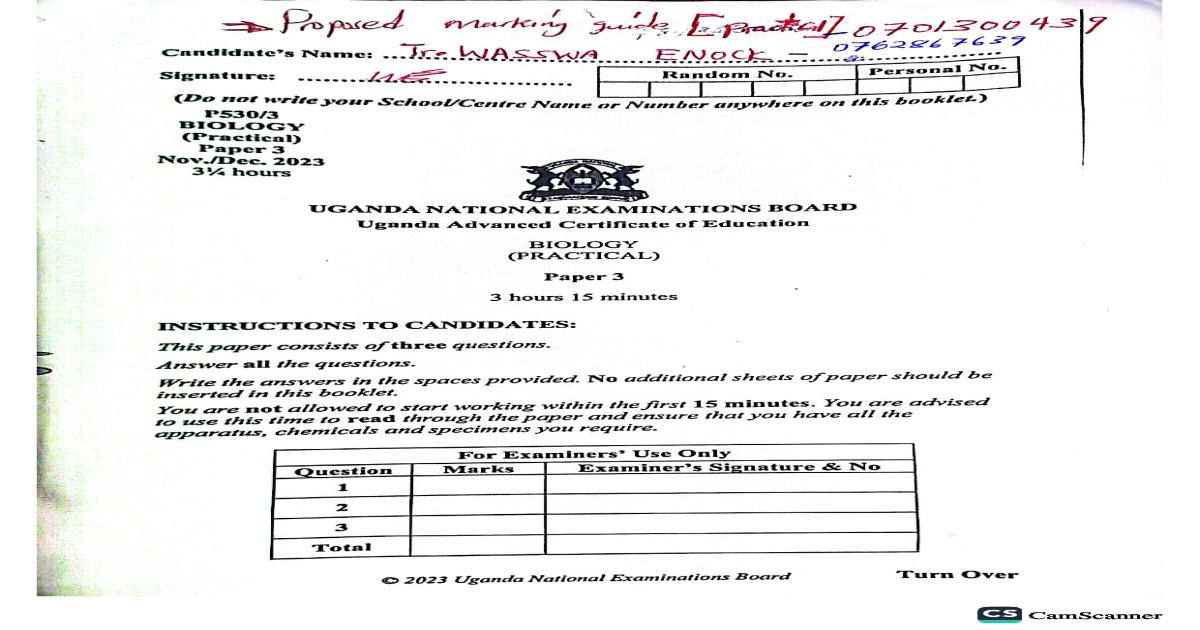 ⇒ Proposed marking guide [practical] 0701300439
Candidate's Name: Tr. WASSWA ENOCK – 0762867639
Signature:
Random No. Personal No.
(Do not write your School/Centre Name or Number anywhere on this booklet.)
P530/3
BIOLOGY
(Practical)
Paper 3
Nov./Dec. 2023
3¼ hours
UGANDA NATIONAL EXAMINATIONS BOARD
Uganda Advanced Certificate of Education
BIOLOGY
(PRACTICAL)
Paper 3
3 hours 15 minutes
INSTRUCTIONS TO CANDIDATES:
This paper consists of three questions.
Answer all the questions.
Write the answers in the spaces provided. No additional sheets of paper should be
inserted in this booklet.
You are not allowed to start working within the first 15 minutes. You are advised
to use this time to read through the paper and ensure that you have all the
apparatus, chemicals and specimens you require.
For Examiners' Use Only
Question Marks Examiner's Signature & No
1
2
3
Total
© 2023 Uganda National Examinations Board
Turn Over
CS CamScanner